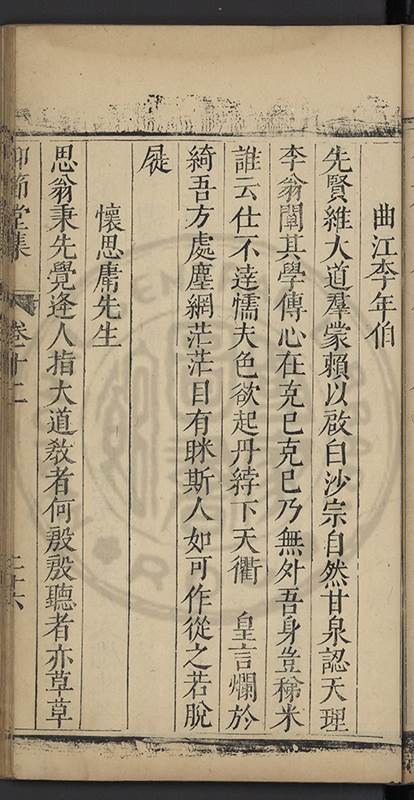 曲江李年伯
先賢維大道羣蒙賴以啟白沙宗自然甘泉認天理
李翁闡其學傳心在克已克已乃無外吾身豈稊米
誰云仕不達懦夫色欲起丹綍下天衢　皇言爛於
綺吾方處塵網茫茫目有眯斯人如可作從之若脫
屣
懷思庸先生
思翁秉先覺逢人指大道敎者何殷殷聽者亦草草
仰節堂集　卷十二